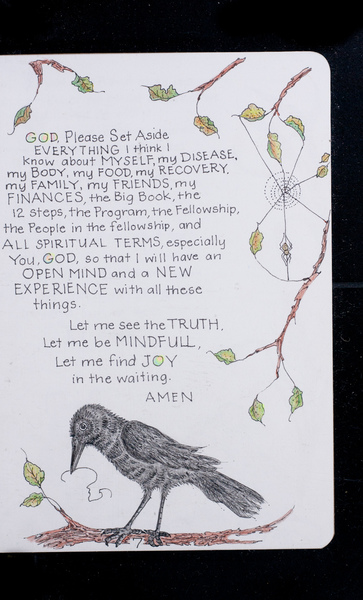 GOD, Please Set Aside
EVERYTHING I think I
know about MYSELF, my DISEASE,
my BODY, my FOOD, my RECOVERY,
my FAMILY, my FRIENDS, my
FINANCES, the Big Book, the
12 steps, the Program, the Fellowship,
the People in the fellowship, and
ALL SPIRITUAL TERMS, especially
You, GOD, so that I will have an
OPEN MIND and a NEW
EXPERIENCE with all these
things.
Let me see the TRUTH,
Let me be MINDFULL,
Let me find JOY
in the waiting.
AMEN